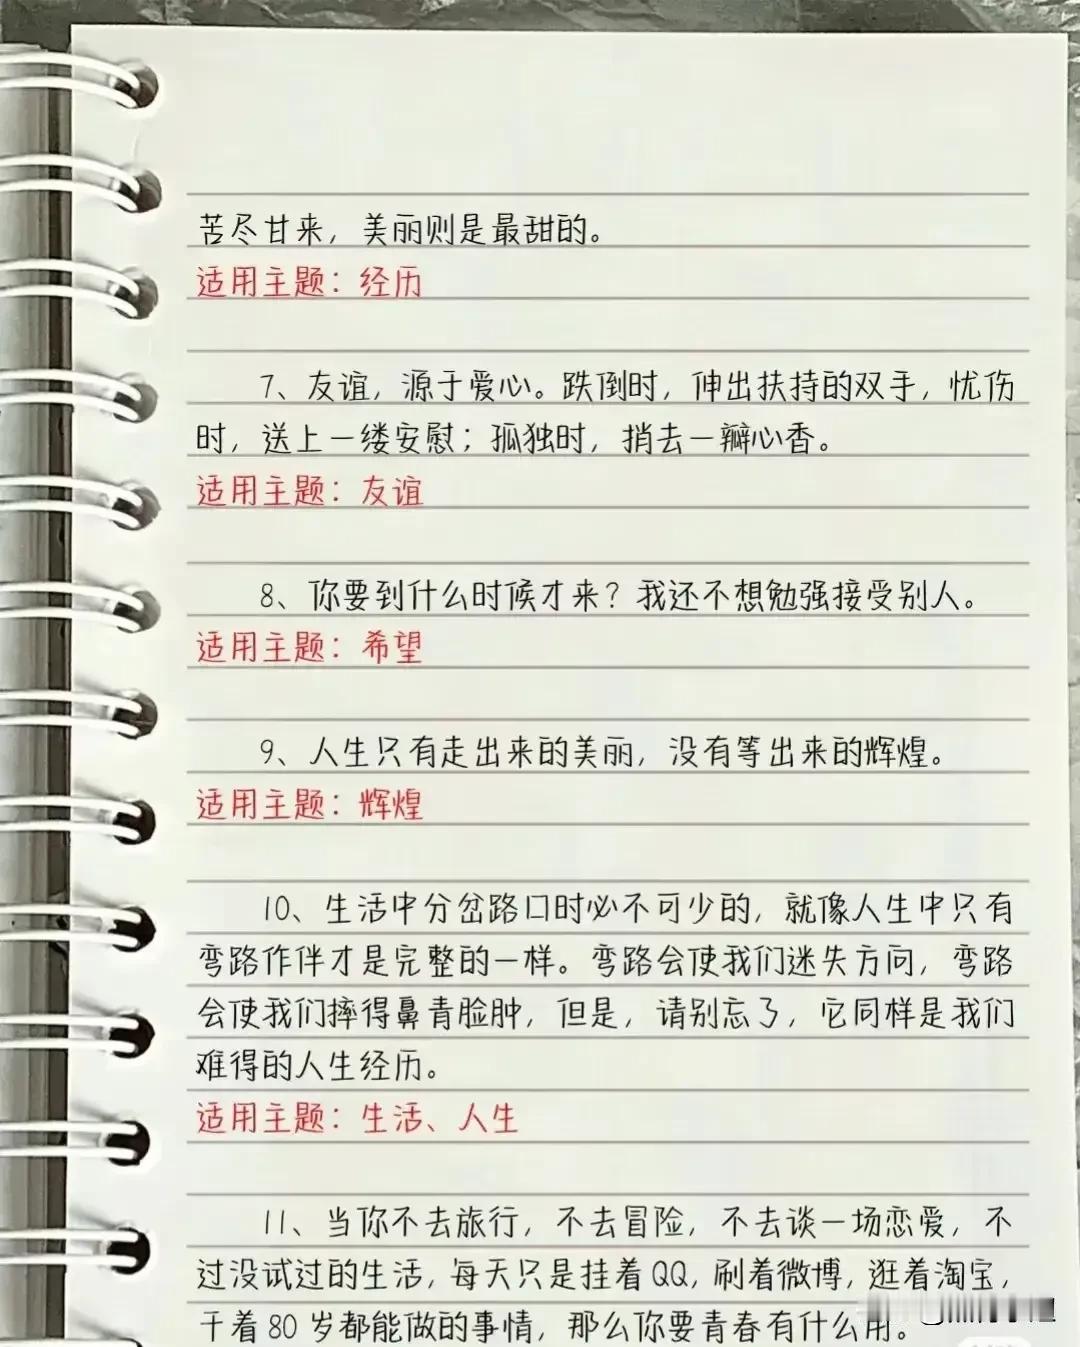 苦尽甘来，美丽则是最甜的。
适用主题：经历
7、友谊，源于爱心。跌倒时，伸出扶持的双手，忧伤
时，送上一缕安慰；孤独时，捎去一瓣心香。
适用主题：友谊
8、你要到什么时候才来？我还不想勉强接受别人。
适用主题：希望
9、人生只有走出来的美丽，没有等出来的辉煌。
适用主题：辉煌
10、生活中分岔路口时必不可少的，就像人生中只有
弯路作伴才是完整的一样。弯路会使我们迷失方向，弯路
会使我们摔得鼻青脸肿，但是，请别忘了，它同样是我们
难得的人生经历。
适用主题：生活、人生
11、当你不去旅行，不去冒险，不去谈一场恋爱，不
过没试过的生活，每天只是挂着QQ，刷着微博，逛着淘宝，
干着80岁都能做的事情，那么你要青春有什么用。